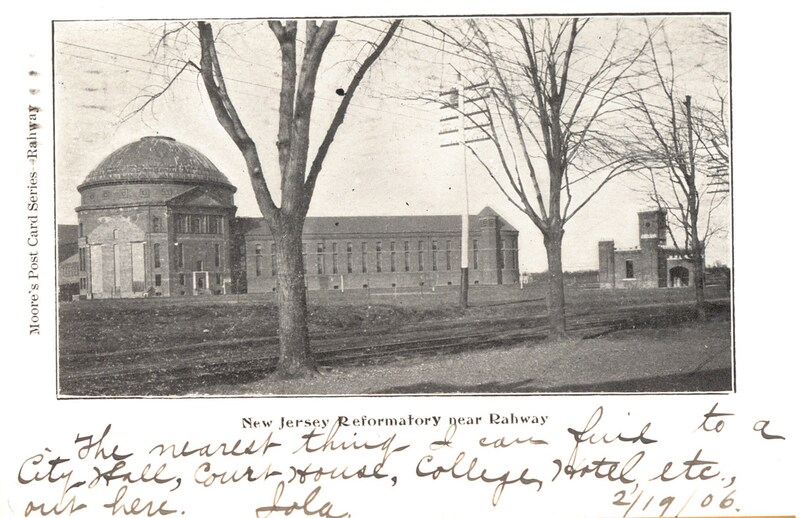 Moore's Post Card Series—Rahway
New Jersey Reformatory near Rahway
The nearest thing I can find to a
City Hall, Court House, College, Hotel, etc.,
out here. Iola.
2/19/06.